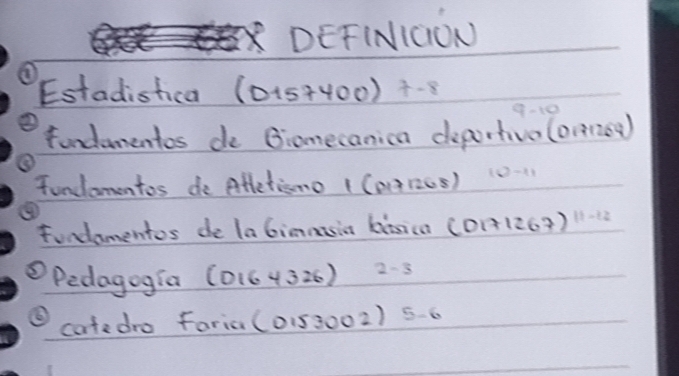 DEFINICIÓN
① Estadistica (0157400) 7-8
② fundamentos de Biomecanica deportiva (0171269) 9-10
③ Fundamentos de Atletismo 1 (0171268) 10-11
④ Fundamentos de la Gimnasia básica (0171267) 11-12
⑤ Pedagogía (0164326) 2-3
⑥ catedra Faria (0153002) 5-6